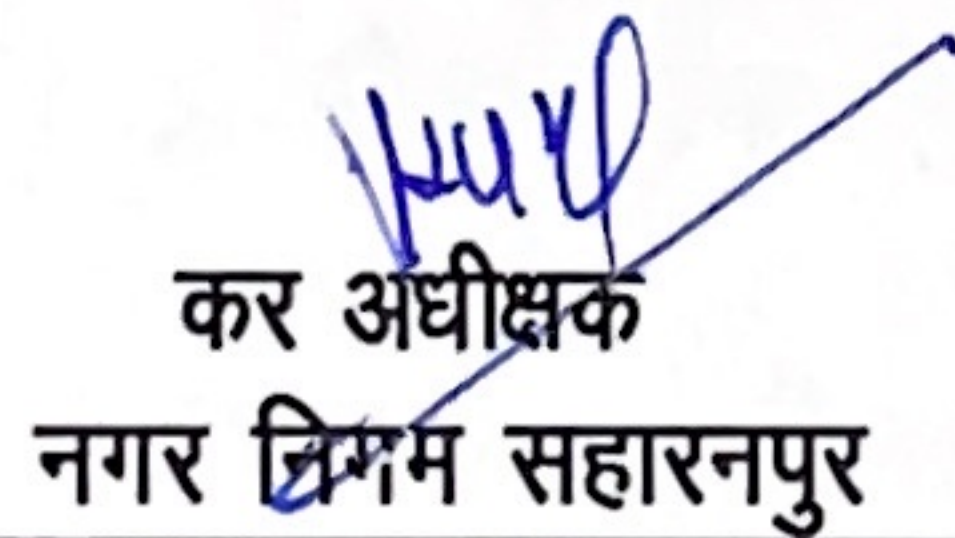 कर अधीक्षक
नगर निगम सहारनपुर